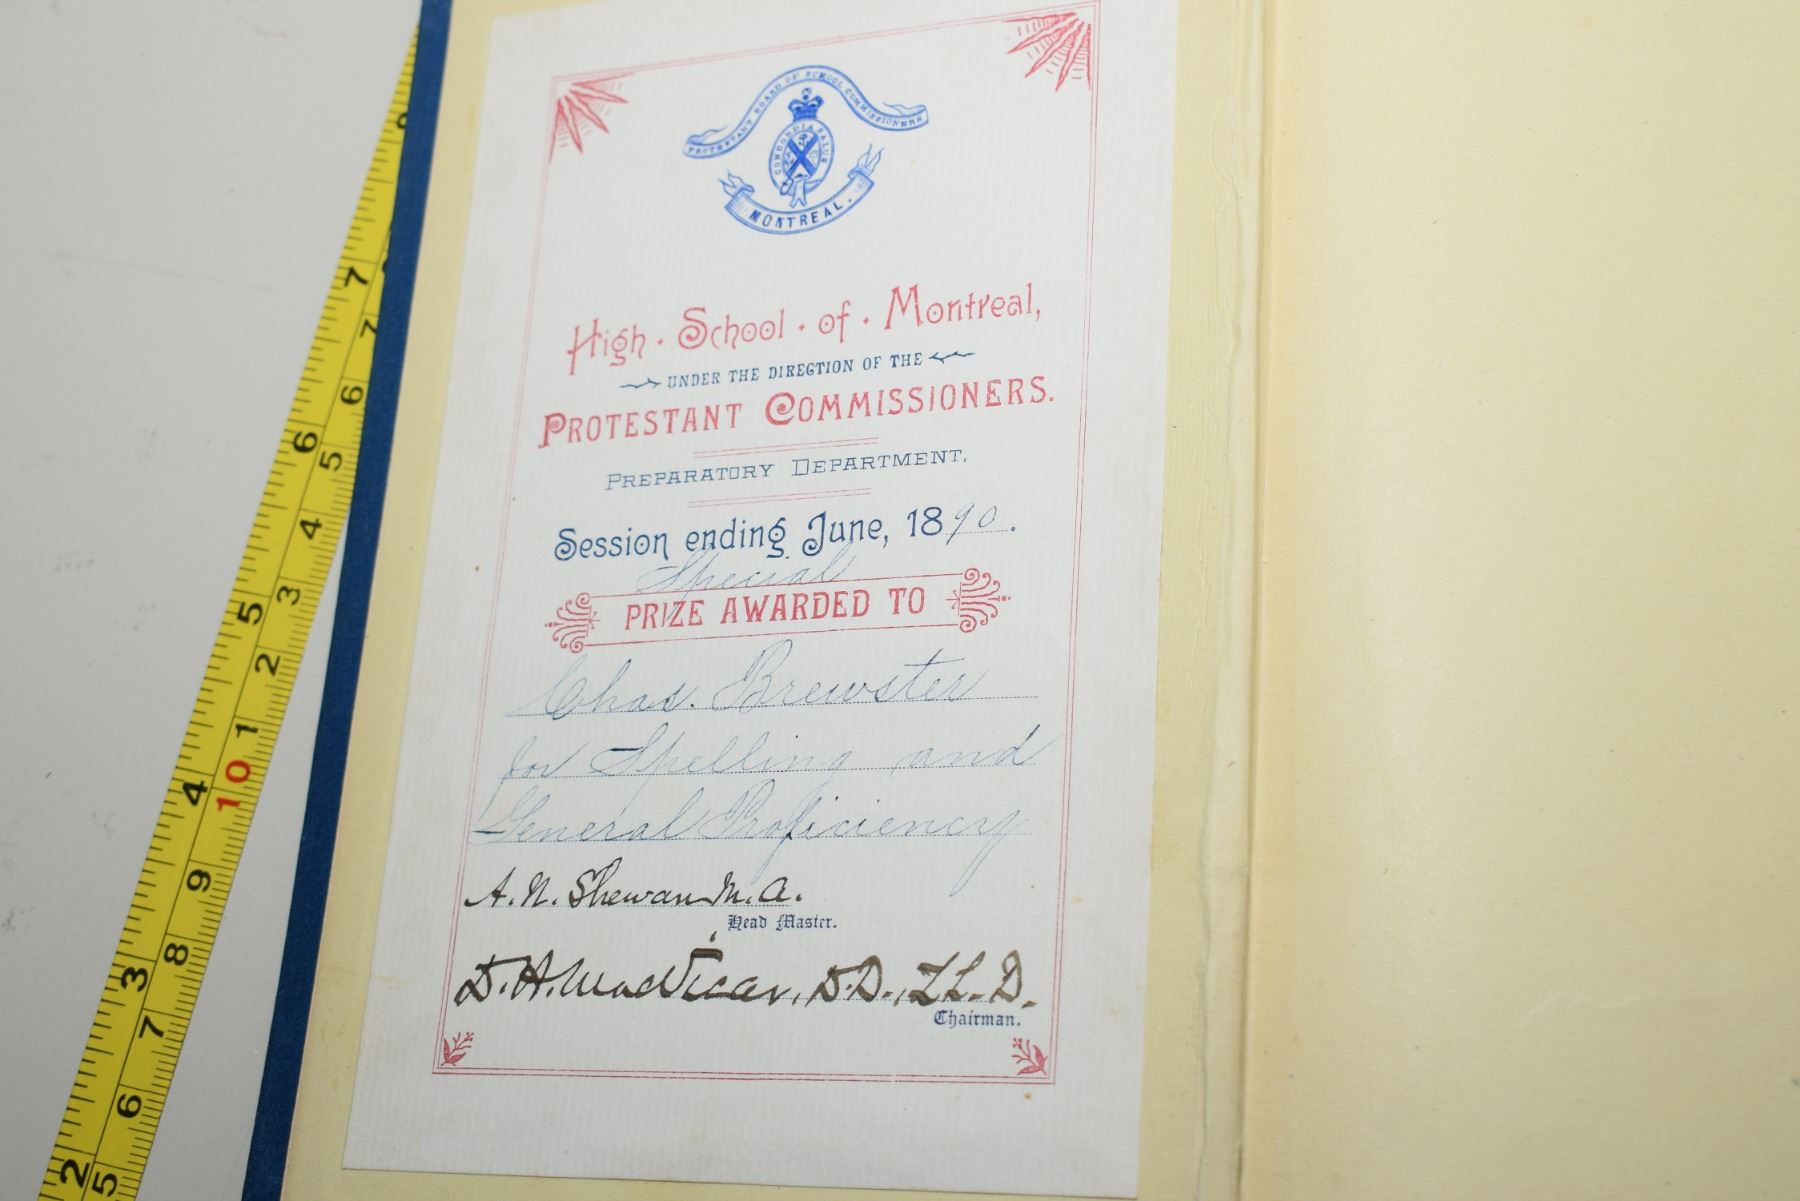 PROTESTANT BOARD OF SCHOOL COMMISSIONERS
CONCORDIA SALUS
MONTREAL.
High · School · of · Montreal,
UNDER THE DIRECTION OF THE
PROTESTANT COMMISSIONERS.
PREPARATORY DEPARTMENT,
Session ending June, 1890.
Special
PRIZE AWARDED TO
Chas. Brewster
for Spelling and
General Proficiency
A. N. Shewan M.A.
Head Master.
D. H. MacVicar, D.D., LL.D.
Chairman.
7
6
5
4
3
2
7
6
5
4
3
2
1
10
9
8
7
6
5